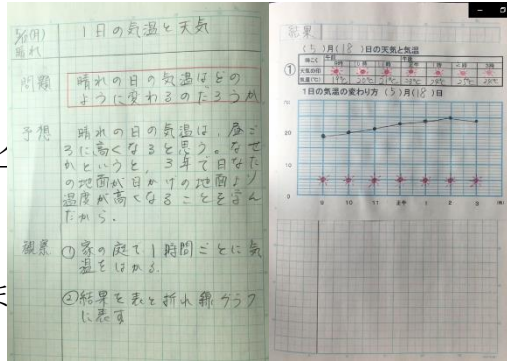 1日の気温と天気
晴れ
問題
晴れの日の気温はどの
ように変わるのだろうか
予想
晴れの日の気温は、昼ご
ろに高くなると思う。なぜ
かというと、3年で日なた
の地面が日かげの地面より
温度が高くなることを学ん
だから。
観察
①家の庭で1時間ごとに気
温をはかる。
②結果を表と折れ線グラフ
に表す
結果
(5)月(18)日の天気と気温
①
午前
気温(℃)
1日の気温の変わり方 (5)月(18)日
20
10
0
9 10 11 正午 1 2 3 (時)